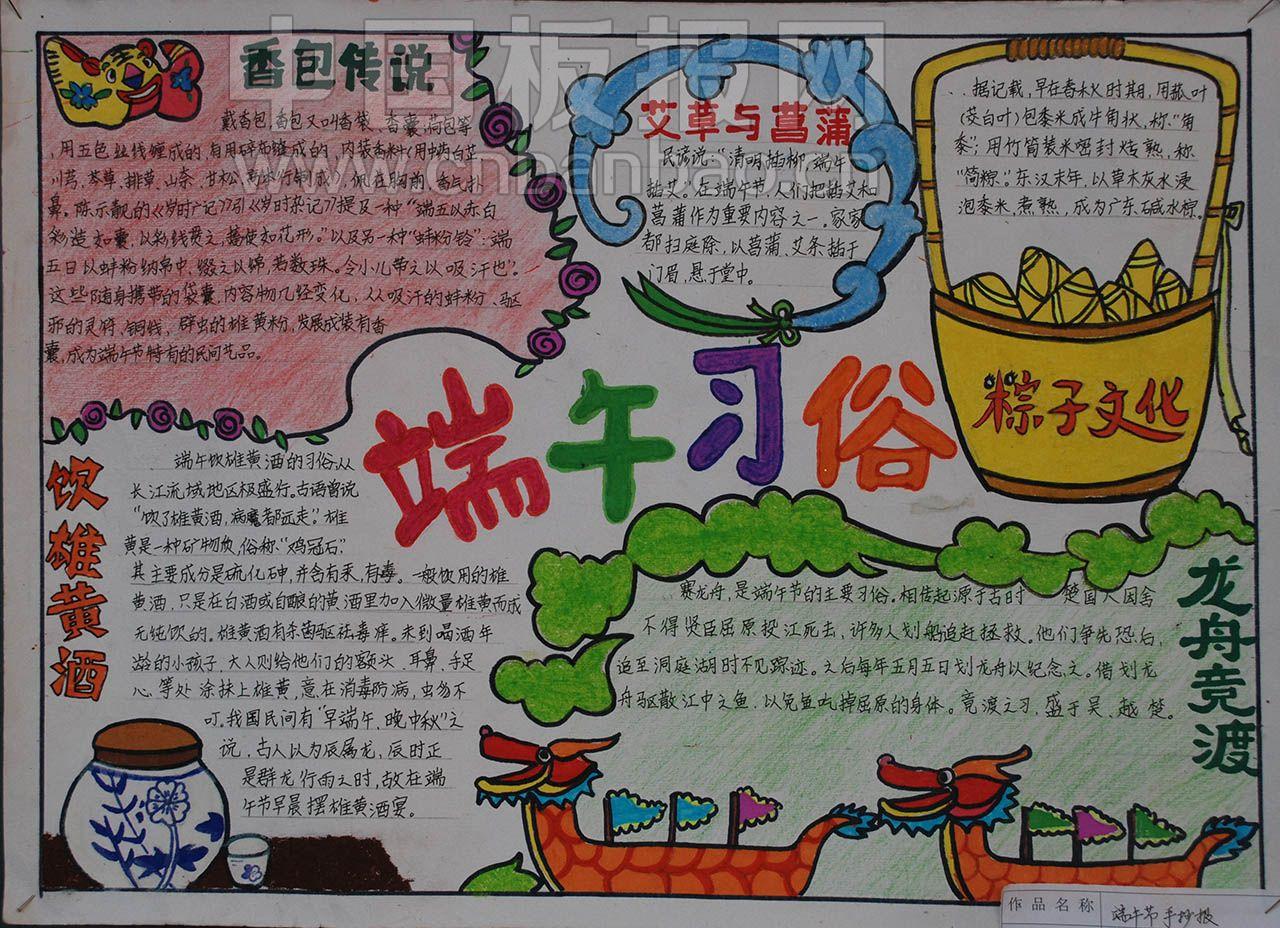 中国板报网
www.cnbanbao.cn
香包传说
戴香包,香包又叫香袋、香囊、荷包等
,用五色丝线缠成的,有用碎布缝成的,内装香料(用中药白芷
川芎、芩草、排草、山奈、甘松、高本行制成),佩在胸前,香气扑
鼻。陈示靓的《岁时广记》引《岁时杂记》提及一种“端五以赤白
彩造如囊,以彩线贯之,搐使如花形。”以及另一种“蚌粉铃”:端
五日以蚌粉纳帛中,缀之以绵,若数珠。令小儿带之以吸汗也”。
这些随身携带的袋囊,内容物几经变化,从吸汗的蚌粉、驱
邪的灵符、铜钱,群虫的雄黄粉,发展成装有香
囊,成为端午节特有的民间艺品。
艾草与菖蒲
民谚说:“清明插柳,端午
插艾。在端午节,人们把插艾和
菖蒲作为重要内容之一,家家
都扫庭除,以菖蒲、艾条插于
门眉,悬于堂中。
据记载,早在春秋时期,用菰叶
(茭白叶)包黍米成牛角状,称“角
黍”;用竹筒装米密封烤熟,称
“筒粽”。东汉末年,以草木灰水浸
泡黍米,煮熟,成为广东碱水粽。
粽子文化
端午习俗
饮雄黄酒
端午饮雄黄酒的习俗,从
长江流域地区极盛行。古语曾说
“饮了雄黄酒,病魔都远走”。雄
黄是一种矿物放,俗称“鸡冠石”
其主要成分是硫化砷,并含有汞,有毒。一般饮用的雄
黄酒,只是在白酒或自酿的黄酒里加入微量雄黄而成
无纯饮的。雄黄酒有杀菌驱祛毒痒。未到喝酒年
龄的小孩子,大人则给他们的额头、耳鼻、手足
心等处涂抹上雄黄,意在消毒防病,虫豸不
叮。我国民间有“早端午,晚中秋”之
说,古人以为辰属龙,辰时正
是群龙行雨之时,故在端
午节早晨摆雄黄酒宴。
龙舟竞渡
赛龙舟,是端午节的主要习俗。相传起源于古时 楚国人因舍
不得贤臣屈原投江死去,许多人划船追赶拯救。他们争先恐后,
追至洞庭湖时不见踪迹。之后每年五月五日划龙舟以纪念之。借划龙
舟驱散江中之鱼,以免鱼吃掉屈原的身体。竞渡之习,盛于吴、越、楚。
作品名称 端午节手抄报